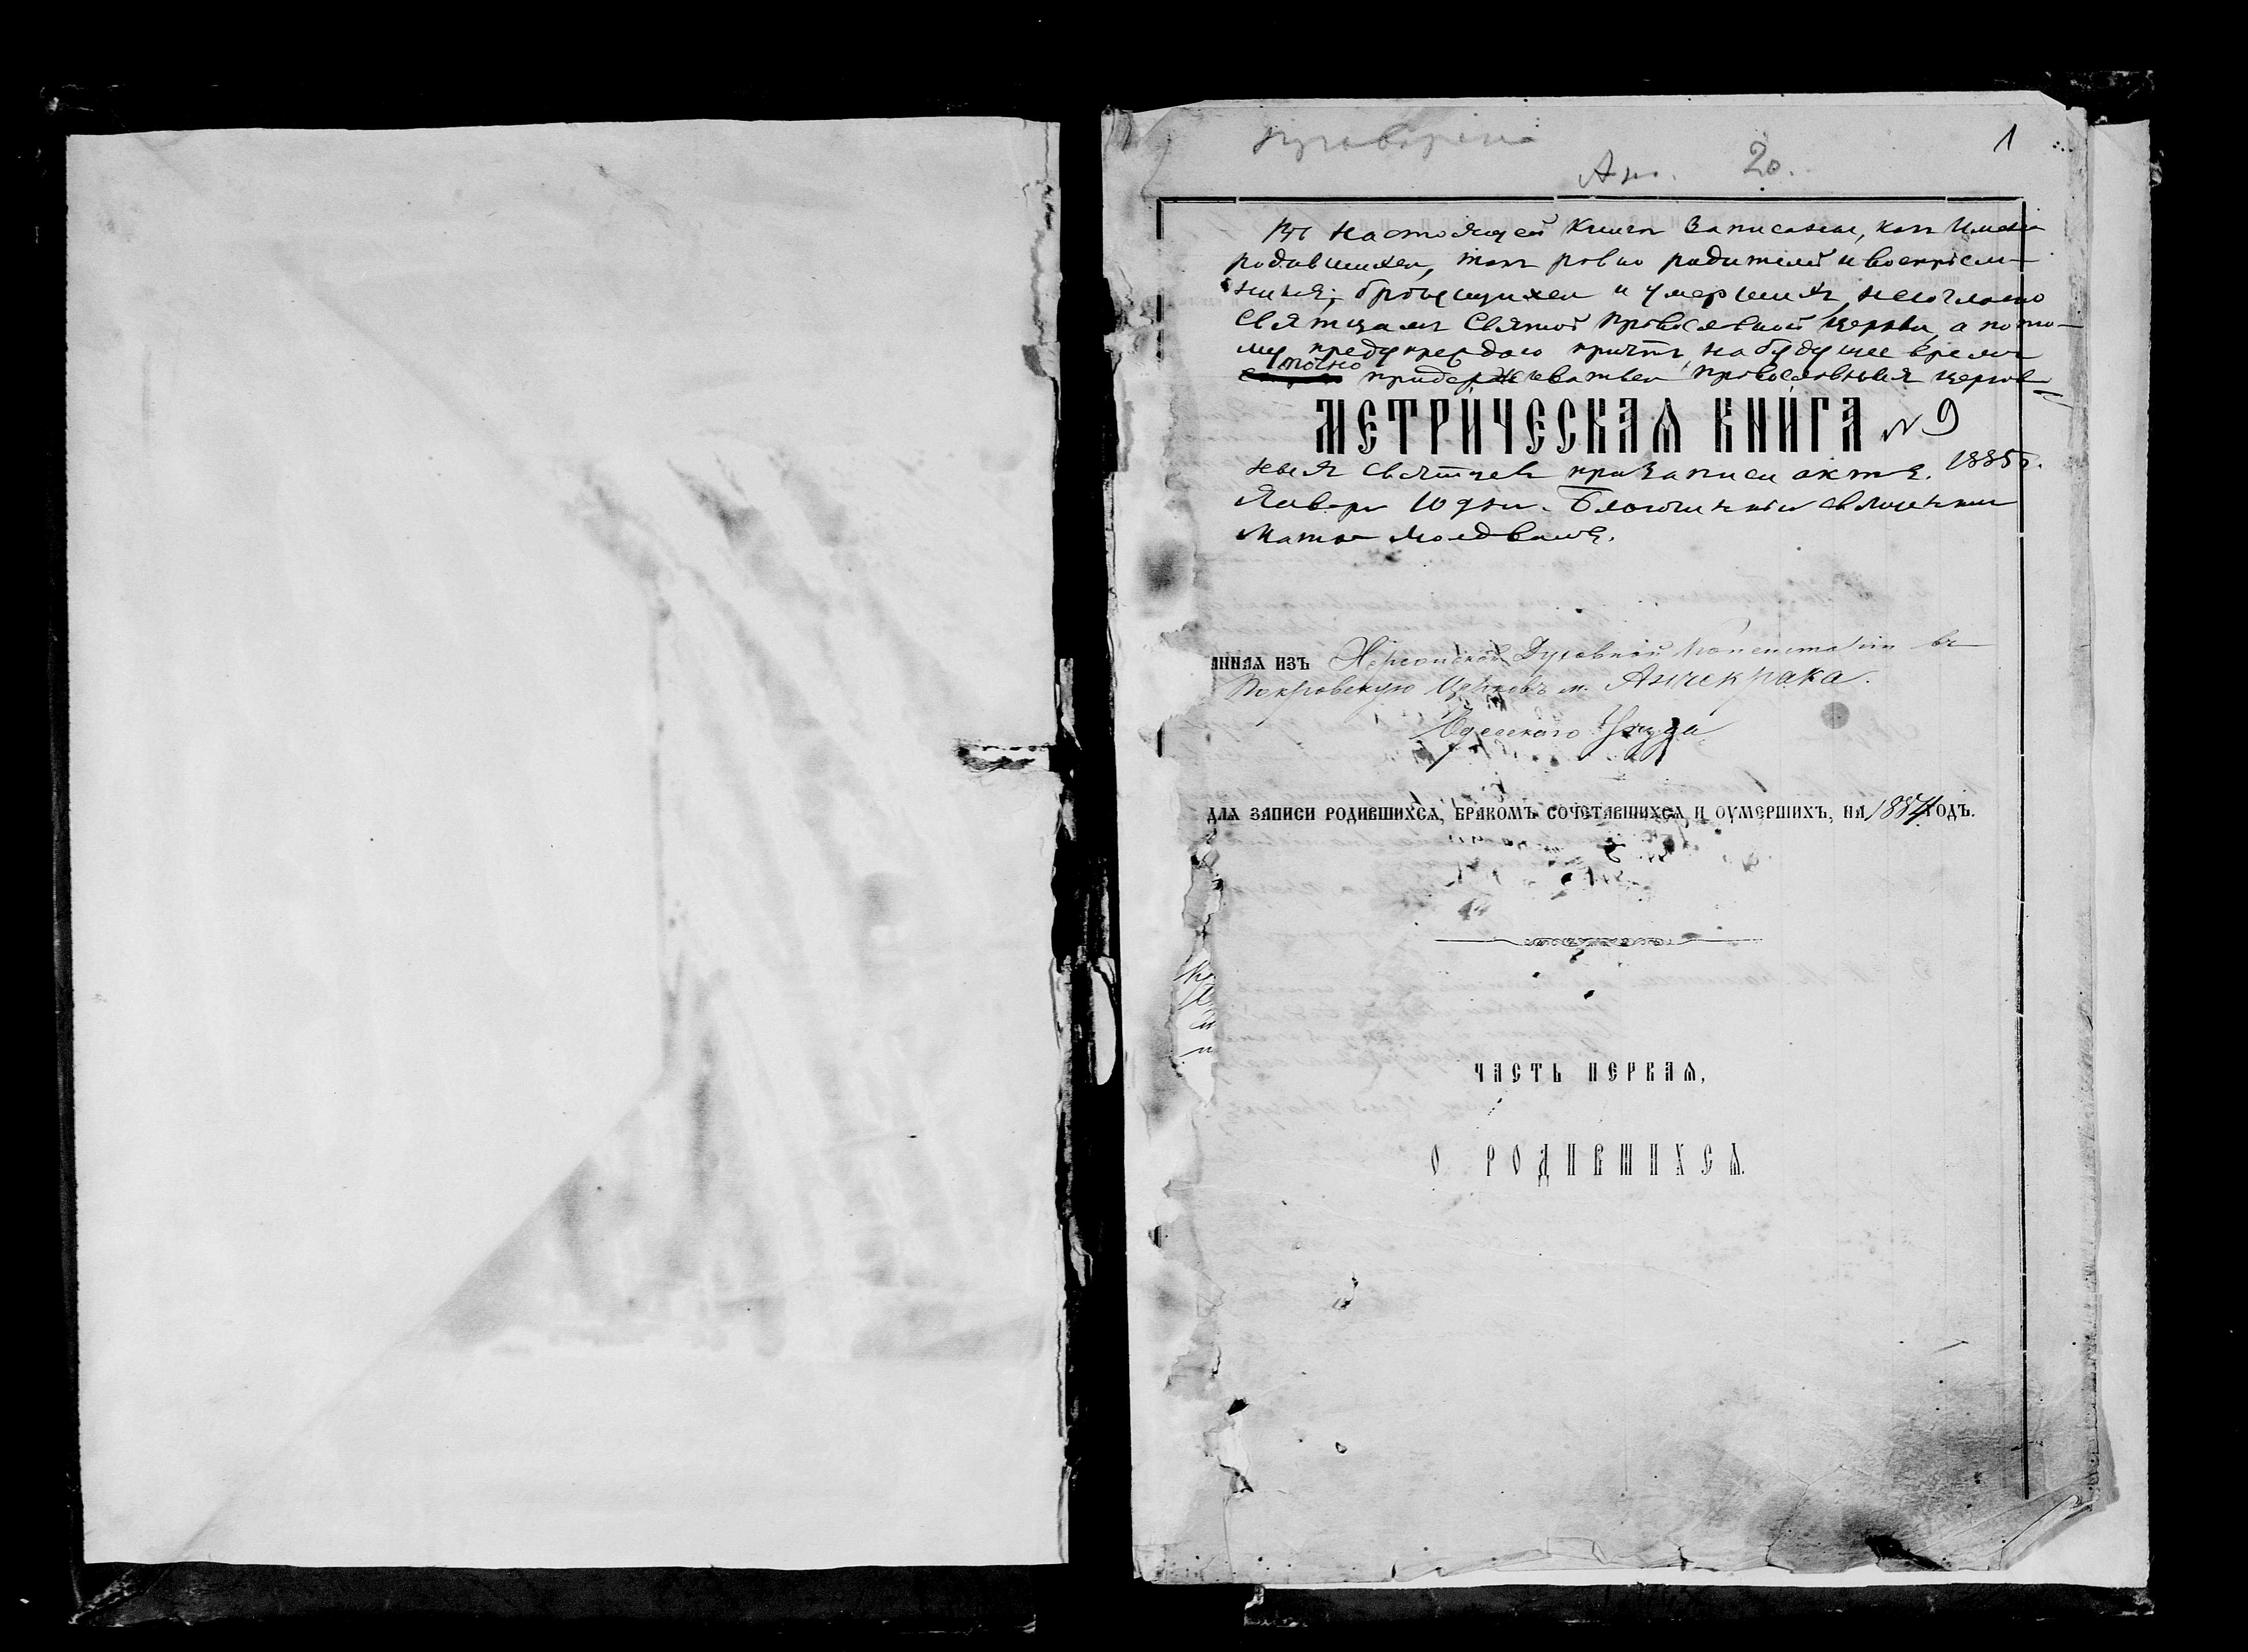 1
20.
Въ настоящей книгѣ записаны, какъ имена
родившихся, такъ ровно родителей и воспрiем-
никовъ, брачущихся и умершихъ, несогласно
Святцамъ Святой Православной Церкви, а пото-
му предупреждаю причтъ, на будущее время
точно придерживаться православныхъ церков-
МЕТРИ́ЧЕСКАѦ КНИ́ГА № 9
ныхъ святцевъ при записи актовъ. 1885 г.
Января 10 дня. Благочинный священникъ
НАѦ ИЗЪ Херсонской Духовной Консисторiи въ
Покровскую Церковь м. Анчекрака.
Одесского Уѣзда
ДЛѦ ЗАПИСИ РОДИВШИХСѦ, БРАКОМЪ СОЧЕТАВШИХСѦ И ОУМЕРШИХЪ, НА 1884 ГОДЪ.
ЧАСТЬ ПЕРВАѦ,
О РОДИВШИХСѦ.